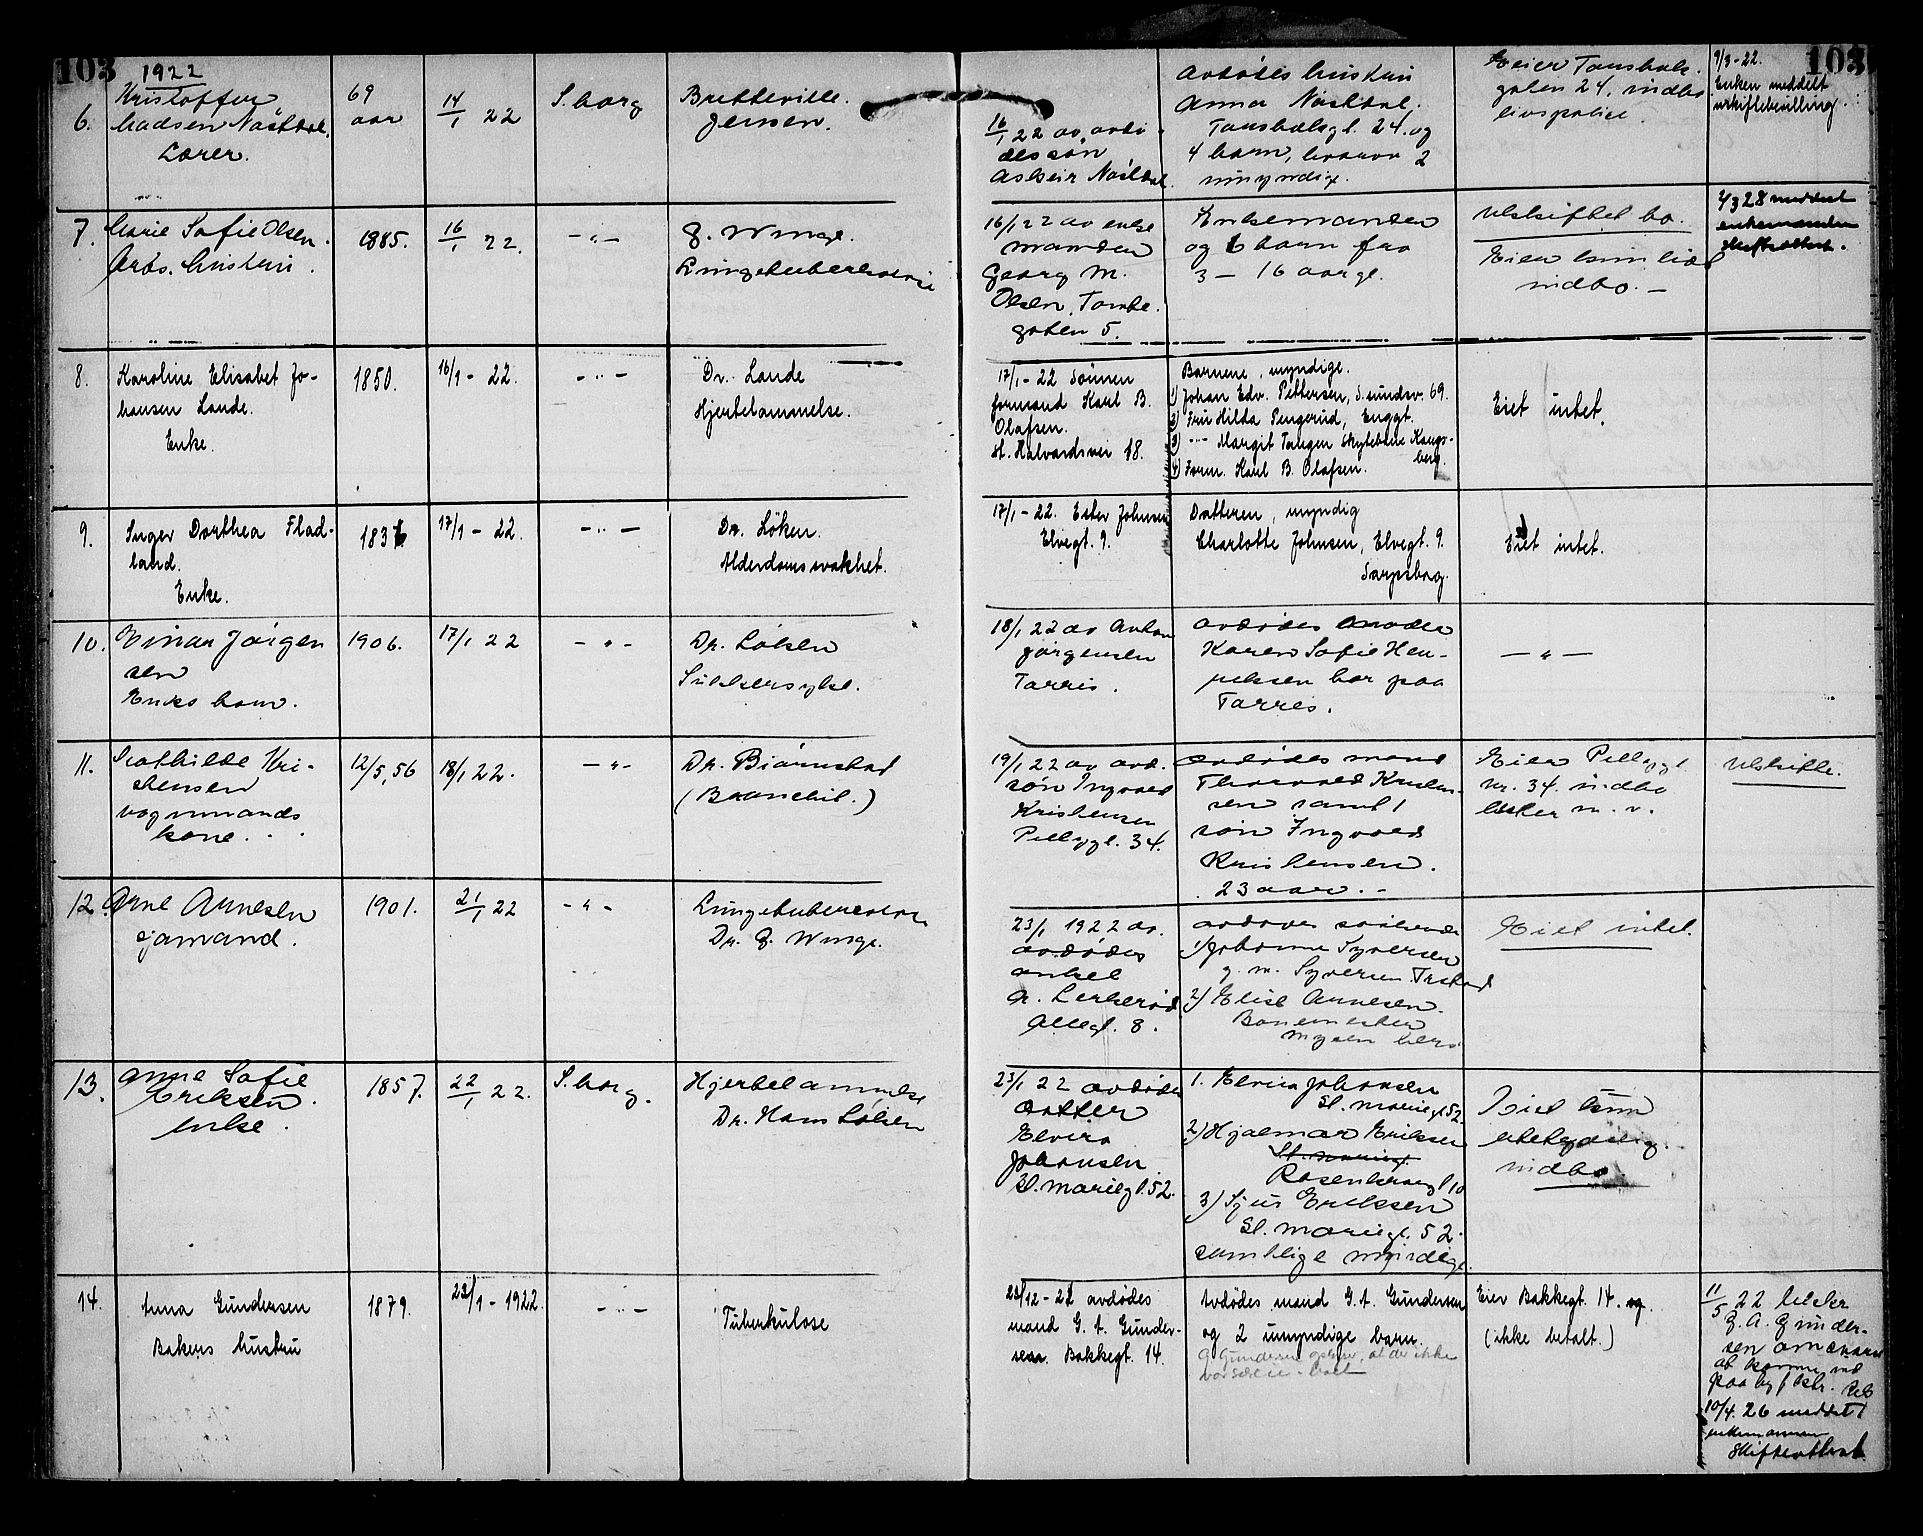 103
1922
103
6.
Kristoffer
Madsen Nastdal.
Lærer.
69
aar
14/1 22
S.borg
Bretteville.
Jensen.
16/1 22 av avdø-
des søn
Asbein Nastdal.
Avdødes hustru
Anna Nastdal.
24. og
4 barn, hvorav 2
umyndige.
Eier
gaten 24, indbo
livspolice.
9/3-22.
Enken meddelt
7.
Marie Sofie Olsen.
Arbs. hustru.
1885.
16/1 22.
-"-
G. Winge.
Lungetuberkulose
16/1 22 av enke
manden
Georg M.
Olsen, Tombe-
gaten 5.
Enkemanden
og 6 barn fra
3 - 16 aar gl.
Uskiftet bo.
Eier kun lidt
indbo. -
meddelt
enkemanden
skifteattest.
8.
Karoline Elisabet Jo-
hansen Lande.
Enke.
1850.
16/1 - 22.
- " -
Dr. Lande
Hjertelammelse.
17/1 - 22 Sönnen
formand Karl B.
Olafsen.
St. Halvardsvei 18.
Barnene, myndige.
1) Johan Edv. Pettersen, S.sundsv. 69.
2) Fru Hilda Pengerud, Enggt.
3) -"- Margit Tangen Skytebane Kongs-
berg.
4) Form. Karl B. Olafsen.
Eiet intet.
9.
Inger Dorthea Flad-
land.
Enke.
17/1 - 22.
- " -
Dr. Löken.
Alderdomssvakhet.
17/1 - 22. Ester Johnsen
Elvegt. 9.
Datteren, myndig
Charlotte Johnsen, Elvegt. 9.
Sarpsborg.
Eiet intet.
10.
Einar Jörgen
sen
Enkes barn.
1906.
17/1 22
- " -
Dr. Löken
Sukkersyke.
18/1 22 av Anton
Jörgensen
Tarris.
Avdödes moder
Karen Sofie Hen-
riksen bor paa
Tarris.
- " -
11.
Mathilde Kri-
stensen
vognmands
kone.
12/5, 56
18/1 22.
- " -
Dr. Biörnstad
19/1 22 av avd.
søn Ingvald
Kristensen
Pellygt. 34.
Avdödes mand
Thorvald Kristen-
sen samt 1
søn Ingvald
Kristensen.
23 aar. -
Eier Pellygt
nr. 34. indbo
hester m. v.
Uskifte.
12.
Arne Arnesen
sjömand.
1901.
21/1 22
- " -
Lungetuberkulose
Dr. G. Winge.
23/1 1922 av.
avdödes
onkel
Allegt. 8.
Avdödes söskende
1) Johanne Syversen
g. m. Syversen
2) Elise Arnesen.
Eiet intet.
13.
Anne Sofie
Eriksen.
enke.
1857.
22/1 22.
S.borg.
Hjertelammelse
Dr. Hans Löken
23/1 22 avdödes
datter
Elvira
Johansen
St. Mariegt. 52.
1. Elvira Johansen
St. Mariegt 52.
2) Hjalmar Eriksen
St. Mariegt
Rosenkranzgt 10
3) Sjur Eriksen
St. Mariegt. 52.
samtlige myndige.
Eiet kun
ubetydelig
indbo
14.
Anna Gundersen
Bakers hustru
1879.
23/1 - 1922.
- " -
Tuberkulose
avdødes
mand G. A. Gunder-
sen. Bakkegt. 14.
Avdødes mand G. A. Gundersen
og 2 umyndige barn.
Eier Bakkegt. 14. og
(ikke betalt.)
11/5 22
G. A. Gunder-
sen
10/4. 26 meddelt
enkemannen
Skifteattest